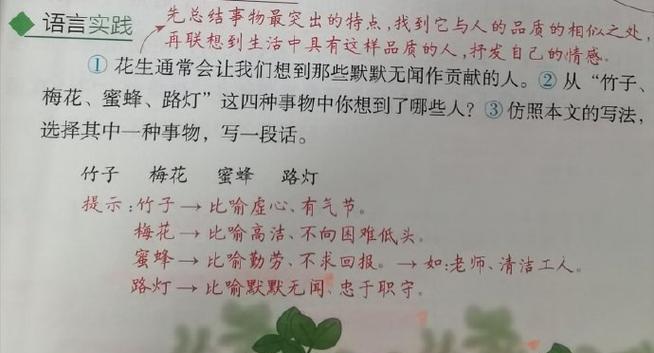 语言实践
先总结事物最突出的特点,找到它与人的品质的相似之处,
再联想到生活中具有这样品质的人,抒发自己的情感。
①花生通常会让我们想到那些默默无闻作贡献的人。②从“竹子、
梅花、蜜蜂、路灯”这四种事物中你想到了哪些人?③仿照本文的写法,
选择其中一种事物，写一段话。
竹子 梅花 蜜蜂 路灯
提示:竹子→比喻虚心、有气节。
梅花→比喻高洁、不向困难低头。
蜜蜂→比喻勤劳、不求回报。→如:老师、清洁工人。
路灯→比喻默默无闻、忠于职守。